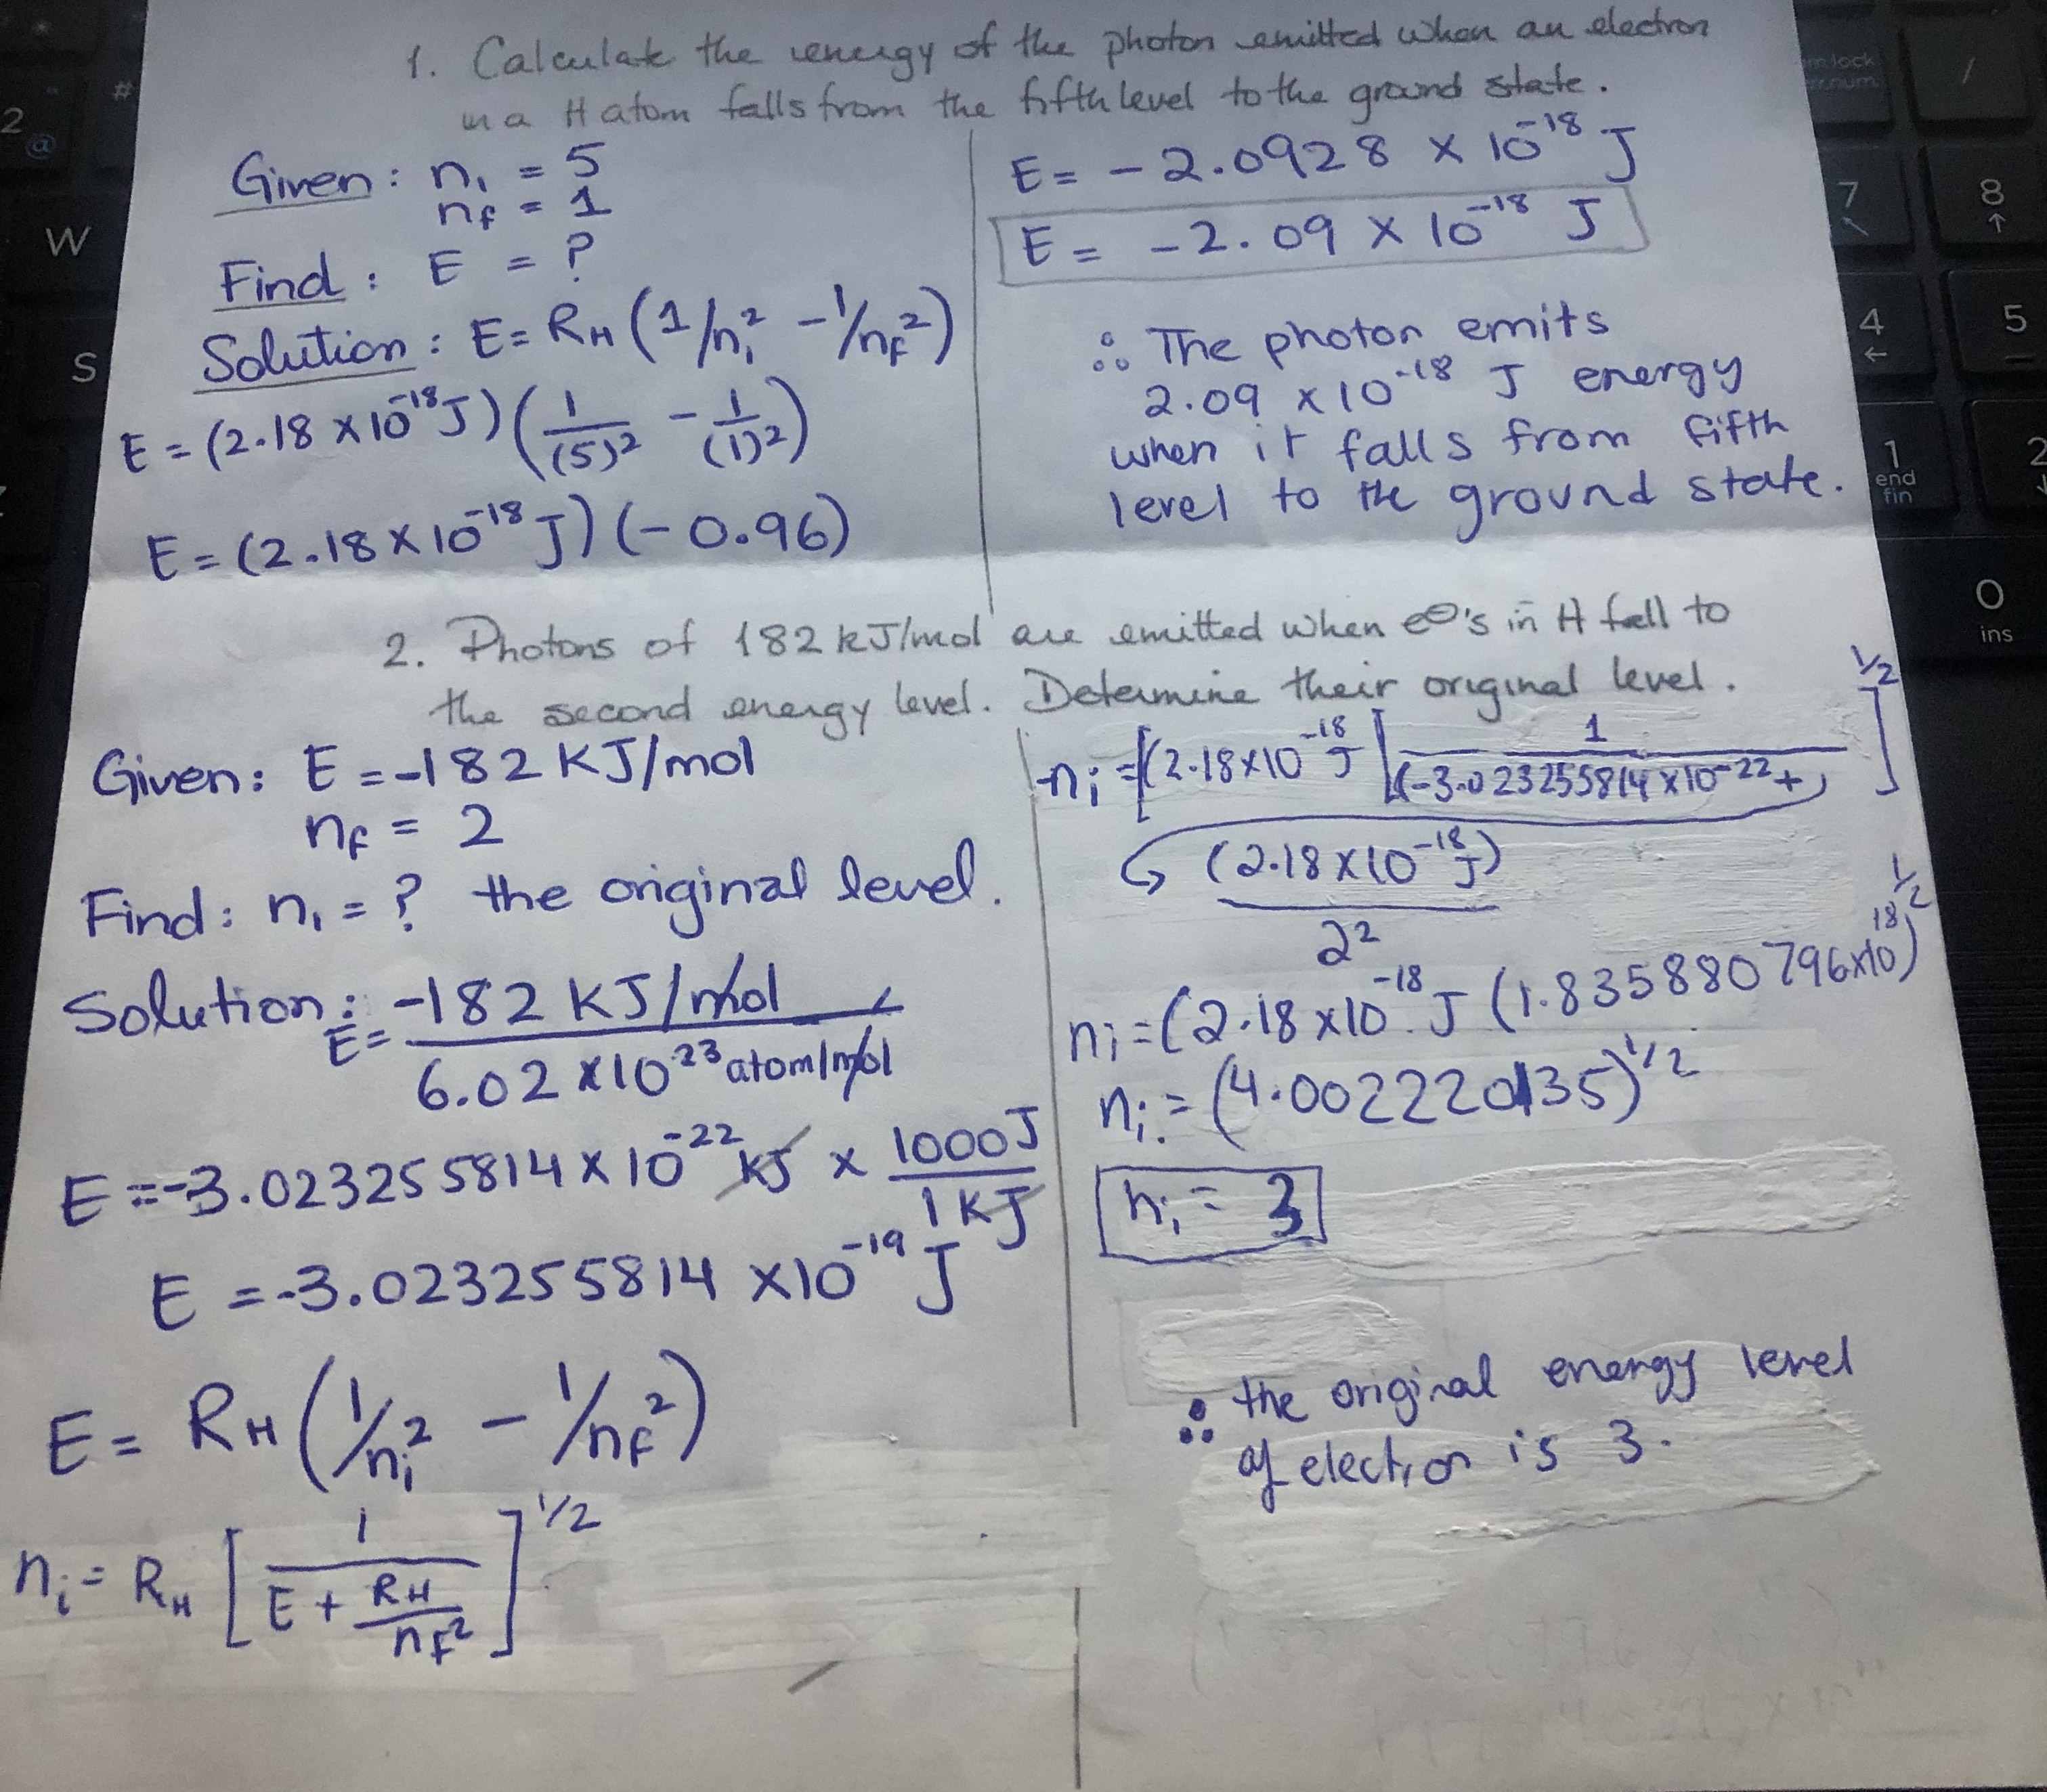 1. Calculate the energy of the photon emitted when an electron
in a H atom falls from the fifth level to the ground state.
Given: n₁ = 5
nf = 1
Find: E = ?
Solution: E = RH (1/nᵢ² - 1/nf²)
E = (2.18 x 10⁻¹⁸ J) (1/(5)² - 1/(1)²)
E = (2.18 x 10⁻¹⁸ J) (-0.96)
E = -2.0928 x 10⁻¹⁸ J
E = -2.09 x 10⁻¹⁸ J
∴ The photon emits
2.09 x 10⁻¹⁸ J energy
when it falls from fifth
level to the ground state.
2. Photons of 182 kJ/mol are emitted when e⊖'s in H fall to
the second energy level. Determine their original level.
Given: E = -182 KJ/mol
nf = 2
Find: n₁ = ? the original level.
Solution: E = -182 KJ/mol
6.02 x 10²³ atom/mol
E = -3.023255814 x 10⁻²² KJ x 1000 J / 1 KJ
E = -3.023255814 x 10⁻¹⁹ J
E = RH (1/nᵢ² - 1/nf²)
nᵢ = RH [1 / (E + RH/nf²)]^1/2
nᵢ = [(2.18 x 10⁻¹⁸ J [1 / ((-3.023255814 x 10⁻²² +)]^1/2
(2.18 x 10⁻¹⁸ J)
2²
nᵢ = (2.18 x 10⁻¹⁸ J (1.835880796 x 10¹⁸)^1/2
nᵢ = (4.002220135)^1/2
nᵢ = 3
∴ the original energy level
of electron is 3.
7
8
4
5
1
end
fin
2
0
ins
/
num
2
@
#
W
S